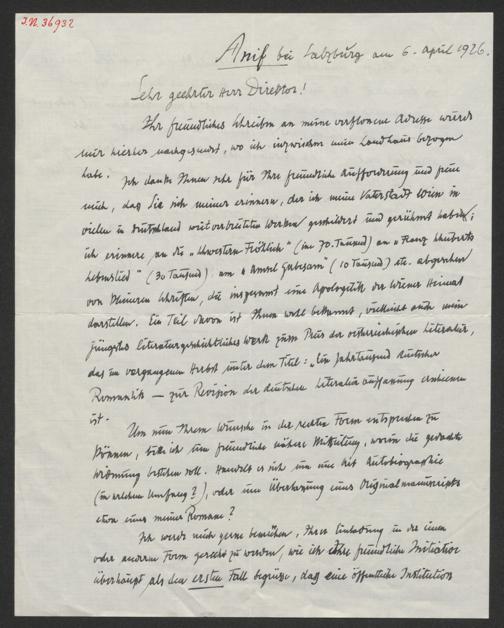 I.N. 36932
Anif bei Salzburg am 6. April 1926.
Sehr geehrter Herr Direktor!
Ihr freundliches Schreiben an meine Adresse wurde
mir hierher nachgesendet, wo ich inzwischen mein Landhaus bezogen
habe. Ich danke Ihnen sehr für Ihre freundliche Aufforderung und freue
mich, daß Sie sich meiner erinnern, der ich meine Vaterstadt Wien in
vielen in Deutschland weit verbreiteten Werken geschildert und gerühmt habe;
ich erinnere an die „Schwestern Fröhlich" (im 70. Tausend) an „Franz Schuberts
Lebenslied" (30 Tausend) an (10 Tausend) etc. abgesehen
von kleineren Schriften, die insgesamt eine Apologetik der Wiener Heimat
darstellen. Ein Teil davon ist Ihnen wohl bekannt, vielleicht auch mein
jüngstes literaturgeschichtliches Werk zum Preis der österreichischen Literatur,
das im vergangenen Herbst unter dem Titel: „Ein Jahrtausend deutscher
Romantik — zur Revision der deutschen Literaturauffassung erschienen
ist.
Um nun Ihrem Wunsche in der rechten Form entsprechen zu
können, bitte ich um freundliche nähere Mitteilung, worin die gedachte
Widmung bestehen soll. Handelt es sich um eine Art Autobiographie
(in welchem Umfang?), oder um Überlassung eines Originalmanuscripts
etwa eines meiner Romane?
Ich werde mich gerne bemühen, Ihrer Einladung in der einen
oder anderen Form gerecht zu werden, wie ich Ihre freundliche Initiative
überhaupt als den ersten Fall begrüße, daß eine öffentliche Institution